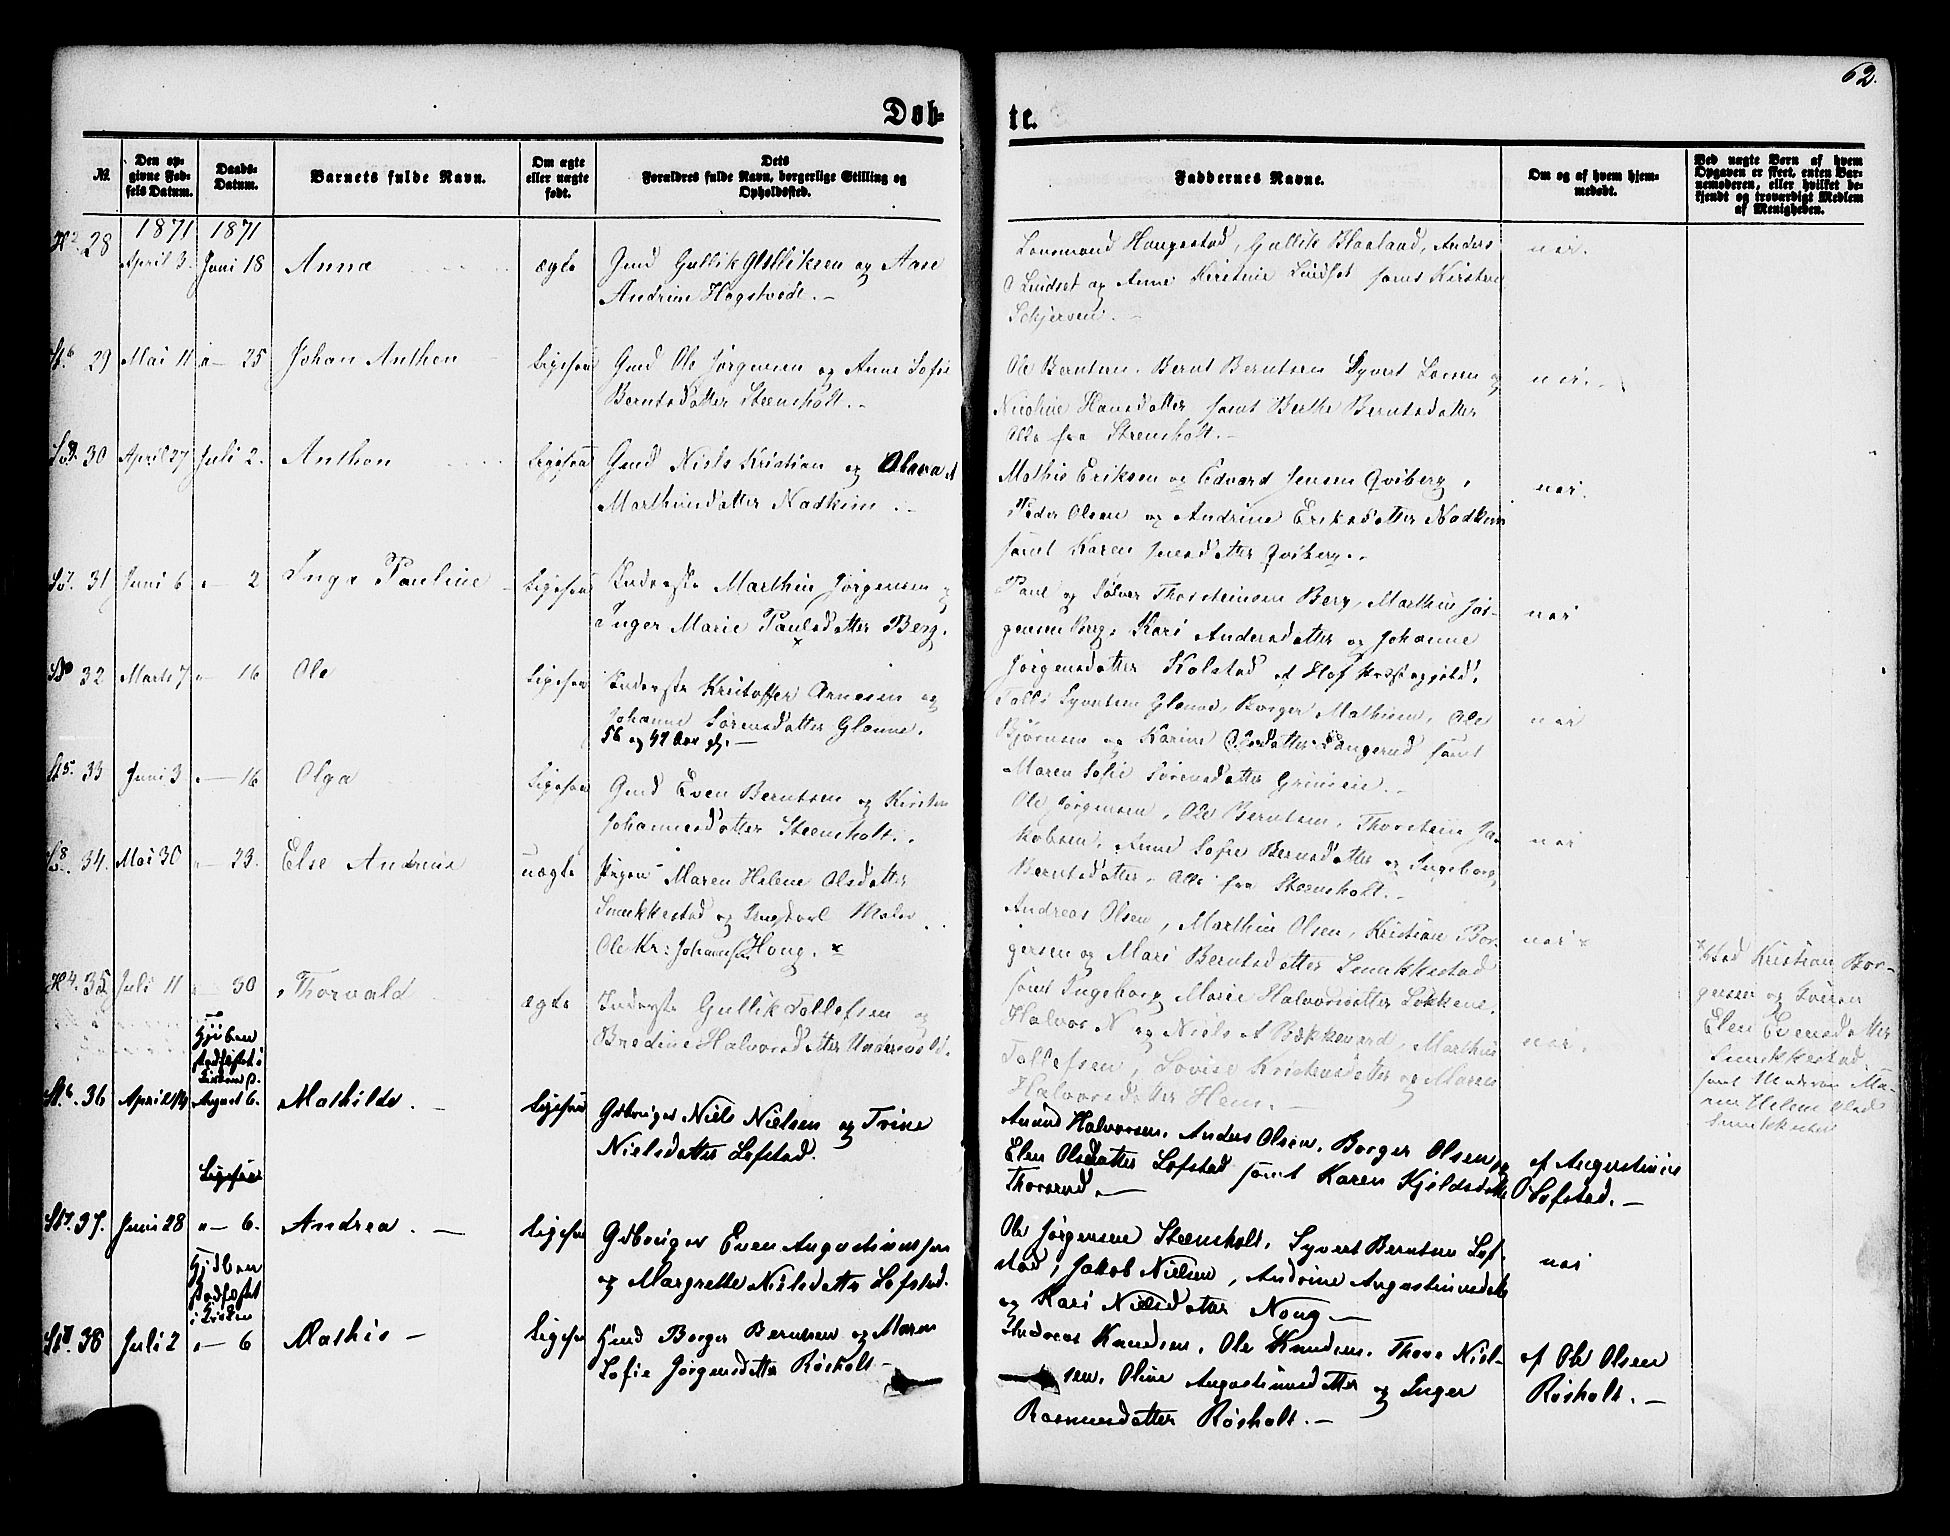 62.
Døb-
te.
№.
Den op-
givne Fød-
sels Datum.
Daabs-
Datum.
Barnets fulde Navn.
Om ægte
eller uægte
født.
Dets
Forældres fulde Navn, borgerlige Stilling og
Opholdssted.
Faddernes Navne.
Om og af hvem hjem-
medøbt.
Ved uægte Børn af hvem
Opgaven er skeet, enten Bar-
nemoderen, eller hvilket be-
kjendt og troværdigt Medlem
af Menigheden.
1871 1871
28 April 3. Juni 18 Anna ægte Gmd Gullik Gulliksen og Aase
Andrine Hogstvedt. —
Lensmand Haugestad, Gullik Blaaland, Anders
Lindset og Anne Kirstine Lindset samt Kirstine
Schjerven. —
nei.
29 Mai 11 " — 25 Johan Anthon Ligesaa Gmd Ole Jørgensen og Anne Sofie
Berntsdatter Steensholt. —
Ole Berntsen. Bernt Berntsen Syvert Larsen og
Nicoline Hansdatter samt Berthe Berntsdatter
Alle fra Steensholt. —
nei.
30 April 27 Juli 2. Anthon Ligesaa Gmd Niels Kristian og Olava
Marthinsdatter Nadkim. —
Mathis Eriksen og Edvard Jensen Qviberg,
Peder Olsen og Andrine Eriksdatter Nadkim
samt Karen Jensdatter Qviberg. —
nei.
31 Juni 6 " — 2 Inga Pauline Ligesaa Inderste Marthin Jørgensen og
Inger Marie Paulsdatter Berg.
Paul og Sølver Thorsteinsen Berg, Marthin Jør-
gensen Berg, Kari Andersdatter og Johanne
Jørgensdatter Kolstad af Hof Præstegjeld.
nei
32 Marts 7 " — 16 Ole Ligesaa Inderste Kristoffer Arnesen og
Johanne Sørensdatter Glenne.
56 og 42 Aar gl. —
Tolle Syvertsen Glenne, Borger Mathisen, Ole
Bjørnsen og Karine Olsdatter Langerud samt
Maren Sofie Sørensdatter Grinieie. —
nei
33 Juni 3 " — 16 Olga Ligesaa Gmd Even Berntsen og Kirstine
Johannesdatter Steensholt.
Ole Jørgensen, Ole Berntsen, Thorstein Ja-
kobsen, Anne Sofie Berntsdatter og Ingeborg
Berntsdatter. Alle fra Steensholt. —
nei
34. Mai 30 " — 23. Else Andrine uægte Pigen Maren Helene Olsdatter
Smukkestad og Ungkarl Maler
Ole Kr: Johansen Houg. ×
Andreas Olsen, Marthin Olsen, Kristian Bor-
gersen og Mari Berntsdatter Smukkestad
samt Ingeborg Marie Halvorsdatter Løkkene.
nei
× Ved Kristian Bor-
gersen og Kvinen
Elen Evensdatter
Smukkestad
samt Moderen Ma-
ren Helene Olsd
Smukkestad
35. Juli 11 " — 30 Thorvald ægte Inderste Gullik Tollefsen og
Bredine Halvorsdatter Undersrød.
Halvor N og Niels A Bækkevard, Marthin
Tollefsen, Lovise Kristensdatter og Maren
Halvorsdatter Hem. —
nei.
36 April 14 Hjdben
stadfæstet i
Kirken d.
August 6. Mathilde. — Ligesaa Gdbruger Niels Nielsen og Trine
Nielsdatter Løfstad.
Anund Halvorsen, Anders Olsen, Borger Olsen og
Elen Olsdatter Løfstad samt Karen Kjeldsdatter
Thorsrud. —
af Augustinus
Løfstad. —
Ligesaa
37. Juni 28 " — 6. Andrea. — Ligesaa Gdbruger Even Augustinussen
og Margrethe Nielsdatter Løfstad.
Ole Jørgensen Steensholt, Syvert Berntsen Løf-
stad, Jakob Nielsen, Andrine Augustinusdatter
og Kari Nielsdatter Noug —
nei
Hjdben
stadfæstet
i Kirken
38 Juli 2 " — 6 Mathis — Ligesaa Gmd Borger Berntsen og Maren
Sofie Jørgensdatter Røsholt —
Andreas Knudsen, Ole Knudsen, Thore Niel-
sen, Oline Augustinusdatter og Inger
Rasmusdatter Røsholt. —
af Ole Olsen
Røsholt. —